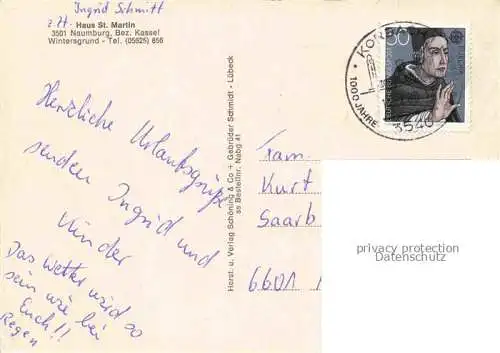 Ingrid Schmitt
z. Zt. Haus St. Martin
3501 Naumburg, Bez. Kassel
Wintersgrund - Tel. (05625) 856
Herzliche Urlaubsgrüße
senden Ingrid und
Kinder
Das Wetter wird so
sein wie bei
Euch!!
Regen
Herst. u. Verlag Schöning & Co + Gebrüder Schmidt - Lübeck
ss Bestellnr. Nabg 41
KORBA
1000 JAHRE
3540
Fam.
Kurt
Saarb
6601
privacy protection
Datenschutz